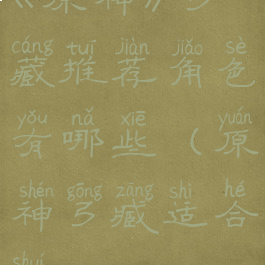 《原神》弓
cáng tuī jiàn jiǎo sè
藏推荐角色
yǒu nǎ xiē yuán
有哪些（原
shén gōng zāng shì hé
神弓臧适合
shuí